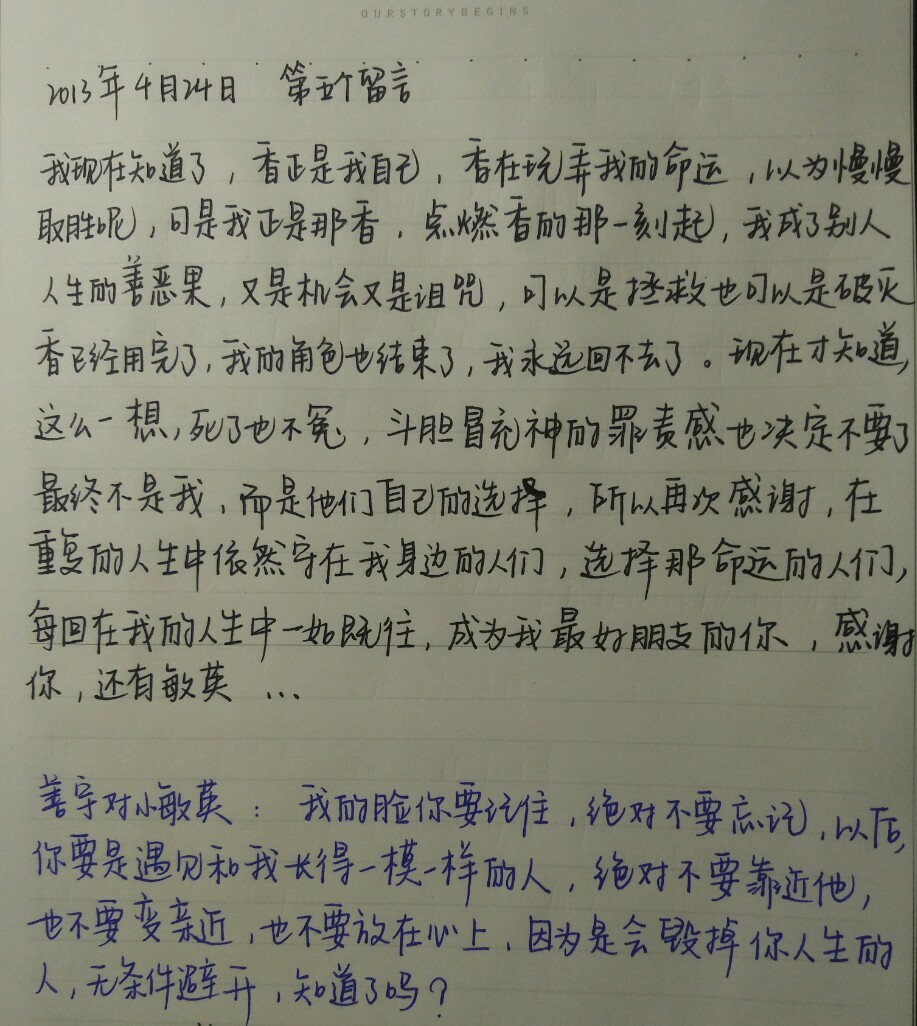 OURSTORYBEGINS
2013年4月24日 第五个留言
我现在知道了，香正是我自己，香在玩弄我的命运，以为慢慢
取胜呢，可是我正是那香，点燃香的那一刻起，我成了别人
人生的善恶果，又是机会又是诅咒，可以是拯救也可以是破灭
香已经用完了，我的角色也结束了，我永远回不去了。现在才知道，
这么一想，死了也不冤，斗胆冒充神的罪责感也决定不要了
最终不是我，而是他们自己的选择，所以再次感谢，在
重复的人生中依然守在我身边的人们，选择那命运的人们，
每回在我的人生中一如既往，成为我最好朋友的你，感谢
你，还有敏英 ...
善宇对小敏英：我的脸你要记住，绝对不要忘记，以后，
你要是遇见和我长得一模一样的人，绝对不要靠近他，
也不要变亲近，也不要放在心上，因为是会毁掉你人生的
人，无条件避开，知道了吗？